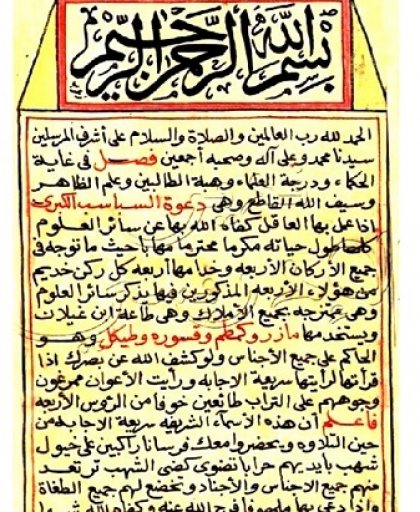 بسم الله الرحمن الرحيم
الحمد لله رب العالمين والصلاة والسلام على أشرف المرسلين
سيدنا محمد وعلى آله وصحبه أجمعين فصل في غاية
الحكماء ودرجة العلماء وهبة الطالبين وعلم الظاهر
وسيف الله القاطع وهي دعوة السباسب الكبرى
اذا عمل بها العاقل كفاه الله بها عن سائر العلوم
طول حياته مكرما محترما مهابا حيث ما توجه في
جميع الأركان الأربعه وخدامها أربعه كل ركن خديم
من هؤلاء الأربعه المذكورين فيها يذكر سائر العلوم
وهي ممتزجه بجميع الأملاك وهي طاعة ابن غيلان
ويستخدمها مازر وكمطم وقسوره وطيكل وهو
الحاكم على جميع الأجناس ولو كشف الله عن بصرك اذا
قرأتها لرأيتها سريعة الاجابه ورأيت الأعوان ممرغون
وجوههم على التراب طائعين خوفا من الرؤس الأربعه
فاعلم أن هذه الأسماء الشريفه سريعة الاجابه من
حين التلاوه ويحضروا معك فرسانا راكبين على خيول
شهب بايديهم حرابا تضوي كضى الشهب ترتعد
منهم جميع الاجناس والأجناد وتخضع لهم جميع الطغاة
واذا دعي بها ملهوفا فرج الله عنه وكفاه الله